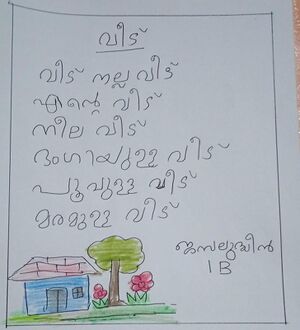 വീട്
വീട് നല്ല വീട്
എന്റെ വീട്
നീല വീട്
ഭംഗിയുള്ള വീട്
പൂവുള്ള വീട്
മരമുള്ള വീട്
1 B